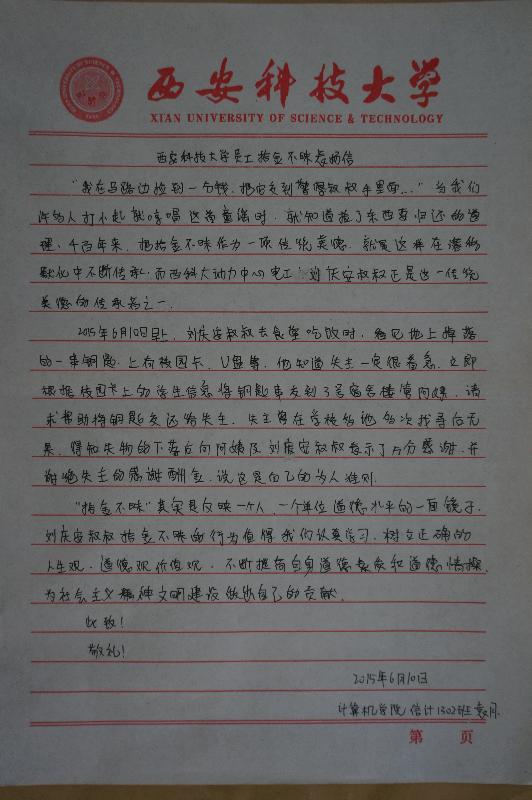 西安科技大学
XIAN UNIVERSITY OF SCIENCE & TECHNOLOGY
西安科技大学员工拾金不昧表扬信
“我在马路边捡到一个钱，把它交到警察叔叔手里面…”当我们
许多人打小起就哼唱这首童谣时，就知道捡了东西要归还的道
理。千百年来，把拾金不昧作为一项传统美德，就是这样在潜移
默化中不断传承。而西科大动力中心电工：刘庆安叔叔正是这一传统
美德的传承者之一。
2015年6月10日早上，刘庆安叔叔去食堂吃饭时，看见地上掉落
的一串钥匙，上有校园卡、U盘等，他知道失主一定很着急，立即
根据校园卡上的学生信息将钥匙串交到了3号宿舍楼管阿姨，请
求帮助将钥匙交还给失主。失主曾在学校多地多次找寻后无
果，得知失物的下落后向阿姨及刘庆安叔叔表示了万分感谢，并
谢绝失主的感谢酬金，说这是自己的为人准则。
“拾金不昧”其实是反映一个人，一个单位道德水平的一面镜子，
刘庆安叔叔拾金不昧的行为值得我们认真学习，树立正确的
人生观、道德观价值观，不断提高自身道德素质和道德情操，
为社会主义精神文明建设做出自己的贡献。
此致！
敬礼！
2015年6月10日
计算机学院 信计1302班 袁月
第 页